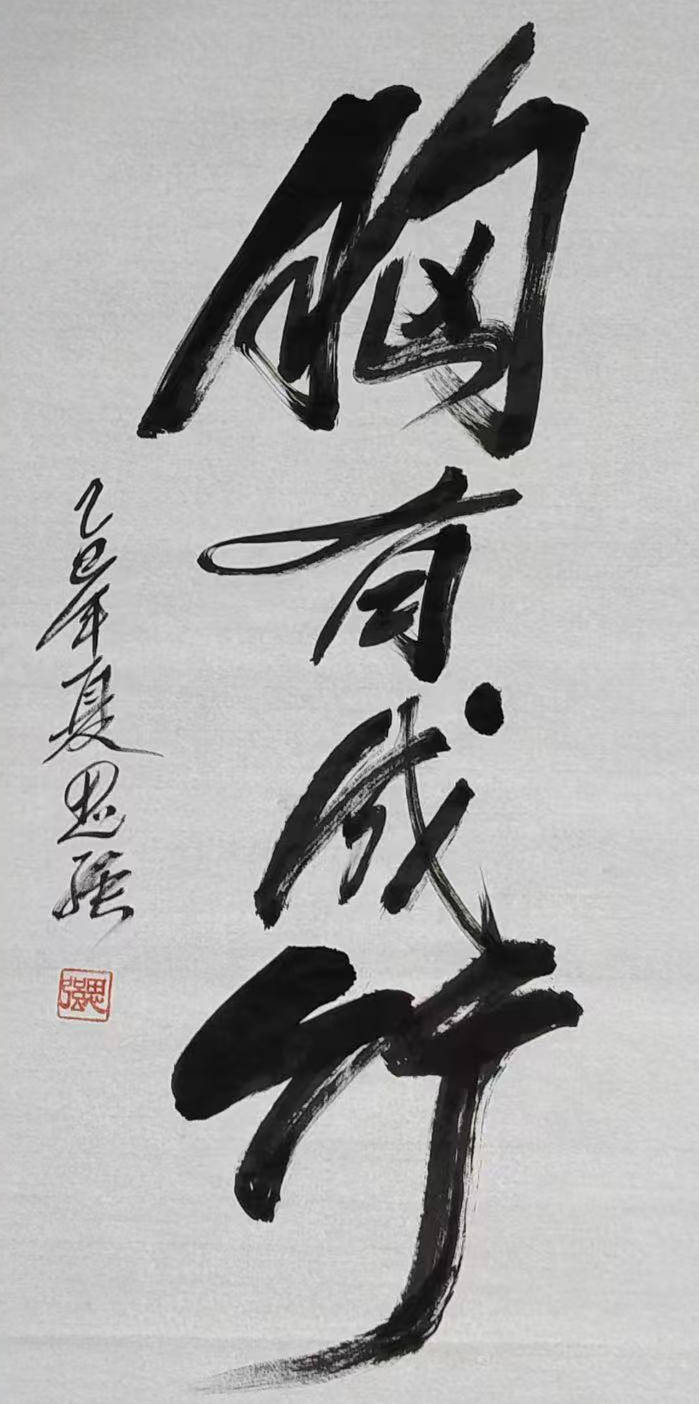 胸有成竹
乙巳年夏思强
思强